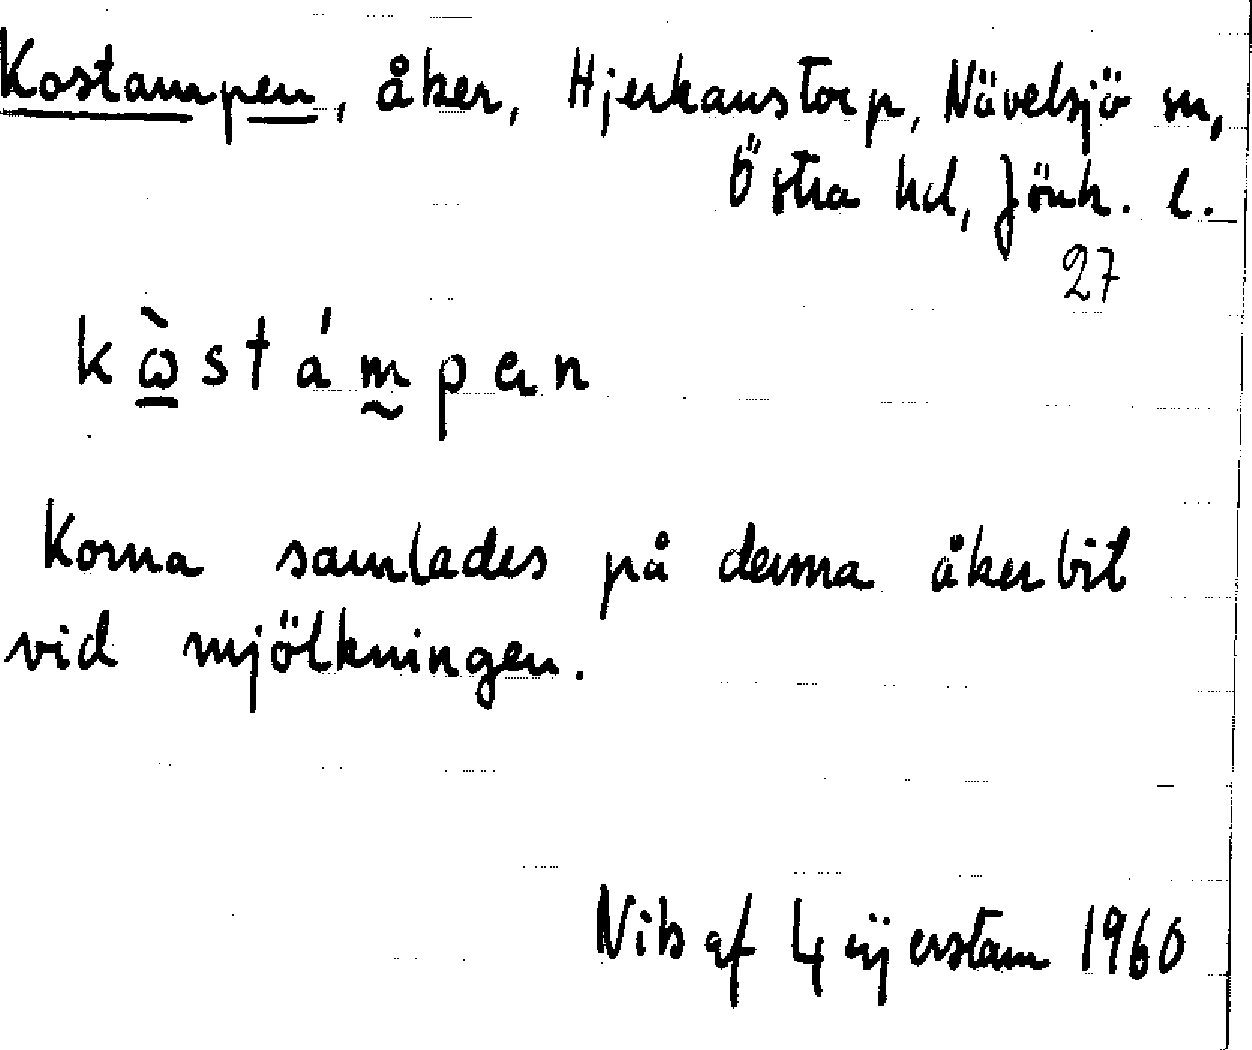 Kostampen, åker, Hjerkanstorp, Nävelsjö sn,
Östra hd, Jönk. l.
27
kὼ̱stám̰pən
Korna samlades på denna åkerbit
vid mjölkningen.
Nils af Geijerstam 1960